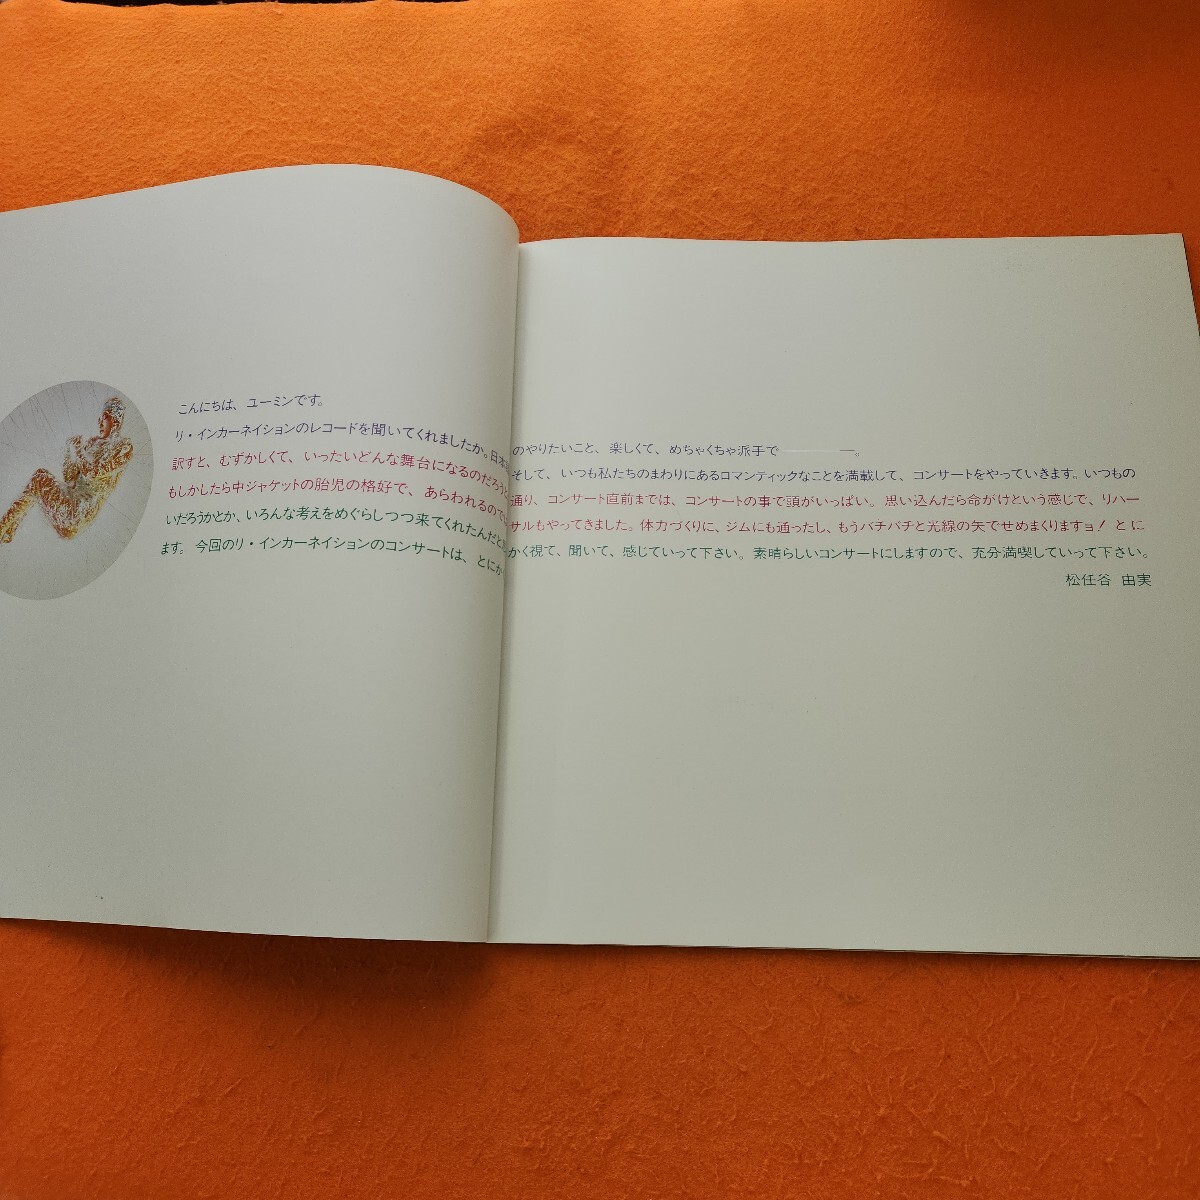 こんにちは、ユーミンです。
リ・インカーネイションのレコードを聞いてくれましたか。日本
訳すと、むずかしくて、いったいどんな舞台になるのだろう
もしかしたら中ジャケットの胎児の格好で、あらわれるので
いだろうかとか、いろんな考えをめぐらしつつ来てくれたんだと
ます。今回のリ・インカーネイションのコンサートは、とにか
のやりたいこと、楽しくて、めちゃくちゃ派手で————。
そして、いつも私たちのまわりにあるロマンティックなことを満載して、コンサートをやっていきます。いつもの
通り、コンサート直前までは、コンサートの事で頭がいっぱい。思い込んだら命がけという感じで、リハー
サルもやってきました。体力づくりに、ジムにも通ったし、もうバチバチと光線の矢でせめまくりますョ！とに
かく視て、聞いて、感じていって下さい。素晴らしいコンサートにしますので、充分満喫していって下さい。
松任谷 由実